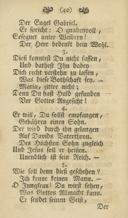 (40)
Der Engel Gabriel.
Er spricht: O gnadenvoll,
Gesegnet unter Weibern!
Der Herr bedenkt dein Wohl.
3.
Dieß konntest Du nicht fassen,
Und bathest Ihn dabey
Dich recht verstehn zu lassen
Was dieß Bothschaft sey.
Maria, zittre nicht;
Denn Du hast Huld gefunden
Vor Gottes Angesicht!
4.
Er will, Du sollst empfangen,
Gebähren einen Sohn.
Der wird durch ihn gelangen
Auf Davids Vaterthron.
Des Höchsten Sohn zugleich
Und Jesus soll er heissen:
Unendlich ist sein Reich.
5.
Wie soll denn dieß geschehen?
Ich kenne keinen Mann.
O Jungfrau! Du wirst sehen,
Was Gottes Allmacht kann.
Es senket Gottes Geist
Der